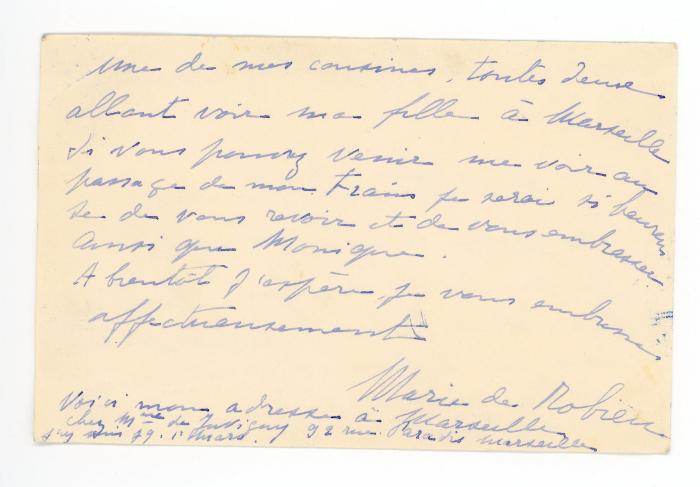 une de mes cousines, toutes deux
allant voir ma fille à Marseille
Si vous pouvez venir me voir au
passage de mon train je serai si heureu
se de vous revoir et de vous embrasser
ainsi que Monique.
A bientôt j'espère je vous embrasse
affectueusement
Marie de Robien
Voici mon adresse à Marseille
chez Mme de Juvigny 92 rue Paradis Marseille
j'y suis 1er Mars.